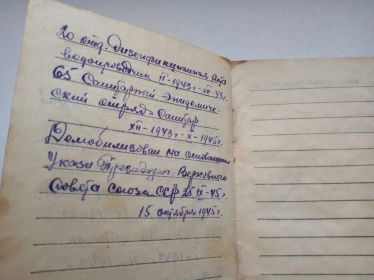 20 отд. дизенфикционная рота
водопроводчик II-1943г.-XII-43г.
65 Санитарный Эпидемиче
ский отряд. Санитар
XII-1943г.-X-1945г.
Демобилизован на основании
Указа Президиума Верховного
Совета Союза ССР 25 IX-45г.
15 октября 1945г.